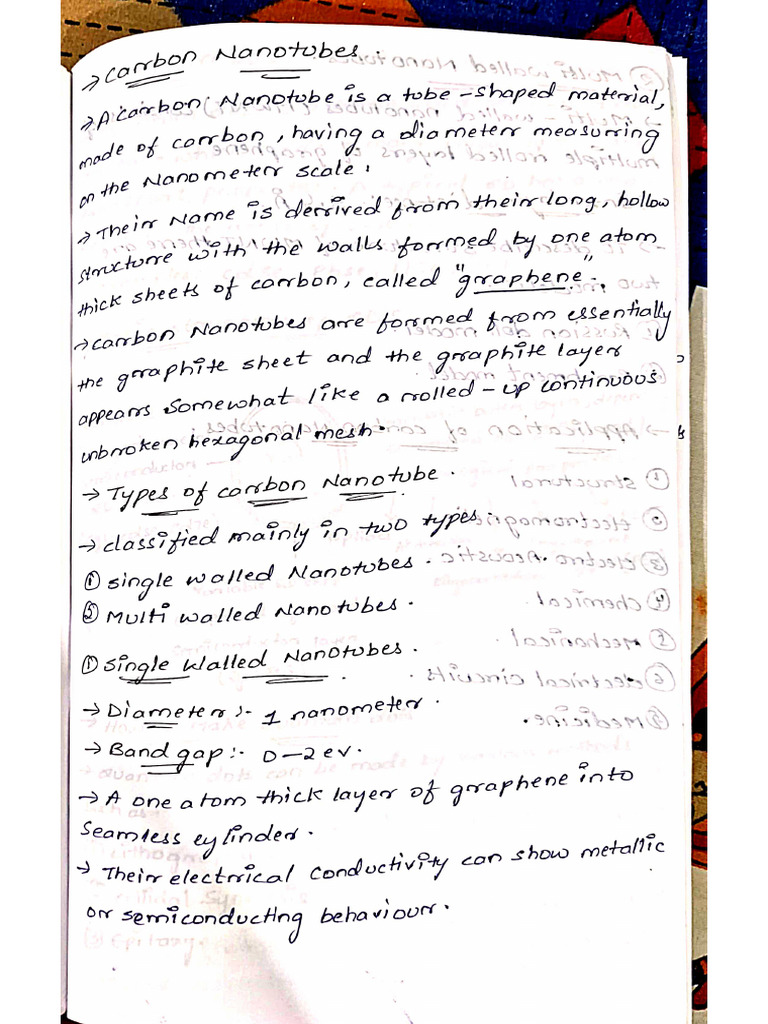 → Carbon Nanotubes.
→ A Carbon Nanotube is a tube-shaped material,
made of carbon, having a diameter measuring
on the Nanometer scale.
→ Their Name is derived from their long, hollow
structure with the walls formed by one atom
thick sheets of carbon, called "graphene".
→ carbon Nanotubes are formed from essentially
the graphite sheet and the graphite layer
appears somewhat like a rolled-up continuous
unbroken hexagonal mesh.
→ Types of carbon Nanotube.
→ classified mainly in two types.
① single walled Nanotubes.
② Multi walled Nanotubes.
① Single Walled Nanotubes.
→ Diameter:- 1 nanometer.
→ Band gap:- 0-2 ev.
→ A one atom thick layer of graphene into
seamless cylinder.
→ Their electrical conductivity can show metallic
or semiconducting behaviour.